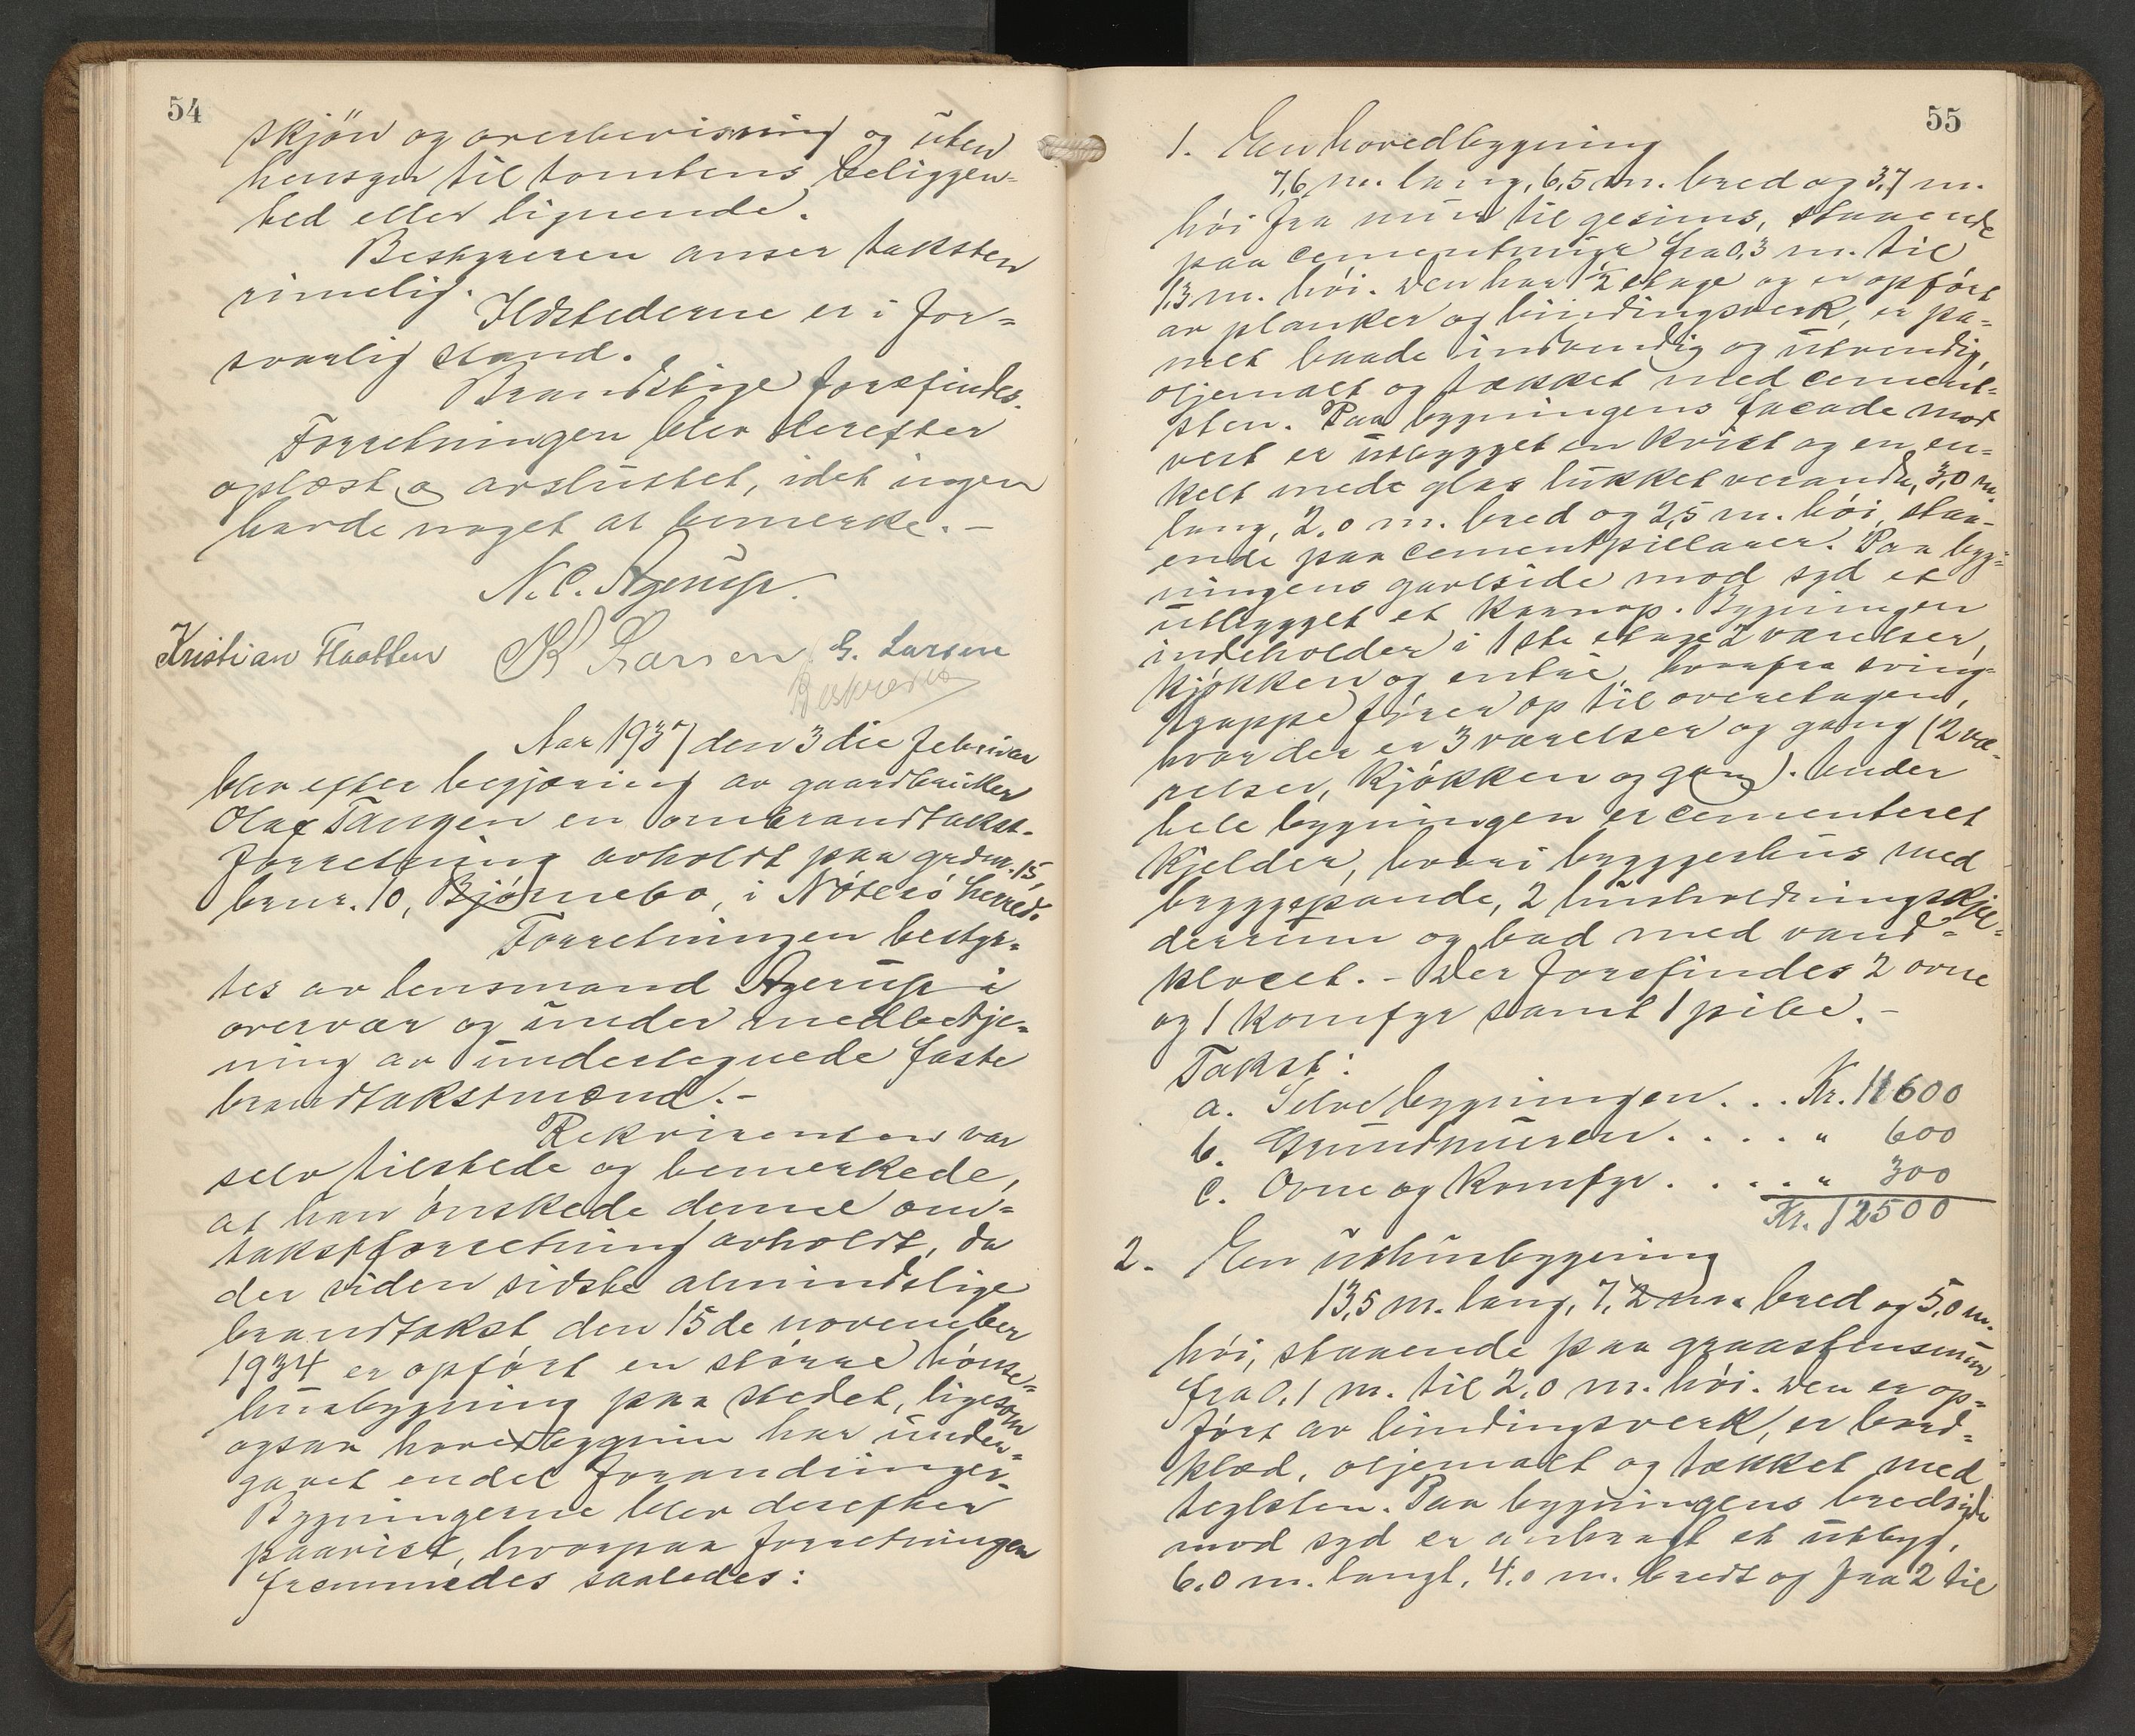 54
skjön og overbevisning og uten
hensyn til tomtens beliggen-
hed eller lignende.
Bestyreren anser taksten
rimelig.
Ildstederne er i for-
svarlig stand.
Brandstige forefindes.
Forretningen blev derefter
oplæst og avsluttet, idet ingen
havde noget at bemerke. -
N. C. Agerup.
Kristian Haatten K Larsen G. Larsen
Aar 1937 den 3die februar
blev efter begjæring av gaardbruker
Olaf Tangen en ombrandtakst-
forretning avholdt paa grdnr. 15,
brnr. 10, Bjørnebo, i Nöterö herred.
Forretningen bestyr-
tes av lensmand Agerup i
overvær og under medbetje-
ning av undertegnede faste
brandtakstmænd. -
Rekvirenten var
selv tilstede og bemerkede,
at han önskede denne om-
takstforretning avholdt, da
der siden sidste almindelige
brandtakst den 15de november
1934 er opfört en större hönse-
husbygning paa stedet, ligesom
ogsaa hovedbygnin har under-
gaaet endel forandringer.
Bygningerne blev derefter
paavist, hvorpaa forretningen
fremmedes saaledes:
55
1. En hovedbygning
7,6 m. lang, 6,5 m. bred og 3,7 m.
höi fra mur til gesims, staaende
paa cementmur fra 0,3 m. til
1,3 m. höi. Den har 1½ etage og er opfört
av planker og bindingsverk, er pa-
nelt baade indvendig og utvendig,
oljemalt og tækket med cement-
sten. Paa bygningens facade mod
vest er utbygget en kvist og en en-
kelt mede glas lukket veranda, 3,0 m.
lang, 2,0 m. bred og 2,5 m. höi, staa-
ende paa cementpillarer. Paa byg-
ningens gavlside mod syd er
utbygget et karnap. Bygningen
indeholder i 1ste etage 2 værelser,
kjökken og entré, hvorfra sving-
trappe förer op til overetagen,
hvor der er 3 værelser og gang (2 væ-
relser, kjökken og gang). Under
hele bygningen er cementeret
kjelder, hvori bryggerhus med
bryggepande, 2 husholdningskjel-
derrum og bad med vand-
klocet. - Der forefindes 2 ovne
og 1 komfyr samt 1 pibe. -
Takst:
a. Selve bygningen. . . Kr. 11600
b. Grundmuren. . . . . " 600
c. Ovne og komfyr. . . . . " 300
Kr. 12500
2. En uthusbygning
13,5 m. lang, 7,2 m. bred og 5,0 m.
höi, staaende paa graastensmur
fra 0,1 m. til 2,0 m. höi. Den er op-
fört av bindingsverk, er bord-
klæd, oljemalt og tækket med
teglsten. Paa bygningens bredside
mod syd er anbragt et utbyg,
6,0 m. langt, 4,0 m. bredt og fra 2 til